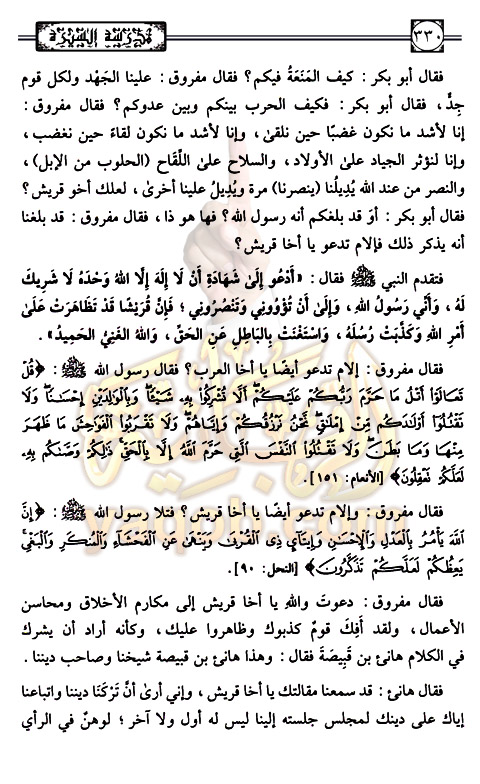 ٣٣٠ مدرسة السيرة
فقال أبو بكر : كيف المَنَعَةُ فيكم؟ فقال مفروق : علينا الجَهْد ولكل قوم
جِدٌّ ، فقال أبو بكر : فكيف الحرب بينكم وبين عدوكم؟ فقال مفروق :
إنا لأشد ما نكون غضبًا حين نلقى ، وإنا لأشد ما نكون لقاءً حين نغضب ،
وإنا لنؤثر الجياد على الأولاد ، والسلاح على اللِّقَاح (الحلوب من الإبل) ،
والنصر من عند الله يُدِيلُنا (ينصرنا) مرة ويُدِيلُ علينا أخرى ، لعلك أخو قريش؟
فقال أبو بكر : أوَ قد بلغكم أنه رسول الله؟ فها هو ذا ، فقال مفروق : قد بلغنا
أنه يذكر ذلك فإلام تدعو يا أخا قريش؟
فتقدم النبي ﷺ فقال : «أَدْعُو إِلَىٰ شَهَادَةِ أَنْ لَا إِلَهَ إِلَّا اللهُ وَحْدَهُ لَا شَرِيكَ
لَهُ ، وَأَنِّي رَسُولُ اللهِ ، وَإِلَىٰ أَنْ تُؤْوُونِي وَتَنْصُرُونِي ؛ فَإِنَّ قُرَيْشًا قَدْ تَظَاهَرَتْ عَلَىٰ
أَمْرِ اللهِ وَكَذَّبَتْ رُسُلَهُ ، وَاسْتَغْنَتْ بِالبَاطِلِ عَنِ الحَقِّ ، وَاللهُ الغَنِيُّ الحَمِيدُ» .
فقال مفروق : إلام تدعو أيضًا يا أخا العرب؟ فقال رسول الله ﷺ : ﴿قُلْ
تَعَالَوْا أَتْلُ مَا حَرَّمَ رَبُّكُمْ عَلَيْكُمْ أَلَّا تُشْرِكُوا بِهِ شَيْئًا وَبِالْوَالِدَيْنِ إِحْسَانًا وَلَا
تَقْتُلُوا أَوْلَادَكُم مِّنْ إِمْلَاقٍ نَّحْنُ نَرْزُقُكُمْ وَإِيَّاهُمْ وَلَا تَقْرَبُوا الْفَوَاحِشَ مَا ظَهَرَ
مِنْهَا وَمَا بَطَنَ وَلَا تَقْتُلُوا النَّفْسَ الَّتِي حَرَّمَ اللَّهُ إِلَّا بِالْحَقِّ ذَٰلِكُمْ وَصَّاكُم بِهِ
لَعَلَّكُمْ تَعْقِلُونَ﴾ [الأنعام : ١٥١] .
فقال مفروق : وإلام تدعو أيضًا يا أخا قريش؟ فتلا رسول الله ﷺ : ﴿إِنَّ
اللَّهَ يَأْمُرُ بِالْعَدْلِ وَالْإِحْسَانِ وَإِيتَاءِ ذِي الْقُرْبَىٰ وَيَنْهَىٰ عَنِ الْفَحْشَاءِ وَالْمُنكَرِ وَالْبَغْيِ
يَعِظُكُمْ لَعَلَّكُمْ تَذَكَّرُونَ﴾ [النحل : ٩٠] .
فقال مفروق : دعوتَ واللهِ يا أخا قريش إلى مكارم الأخلاق ومحاسن
الأعمال ، ولقد أَفِكَ قومٌ كذبوك وظاهروا عليك ، وكأنه أراد أن يشرك
في الكلام هانئ بن قَبِيصَةَ فقال : وهذا هانئ بن قبيصة شيخنا وصاحب ديننا .
فقال هانئ : قد سمعنا مقالتك يا أخا قريش ، وإني أرىٰ أنَّ تَرْكَنَا ديننا واتباعنا
إياك على دينك لمجلس جلسته إلينا ليس له أول ولا آخر ؛ لوهنٌ في الرأي